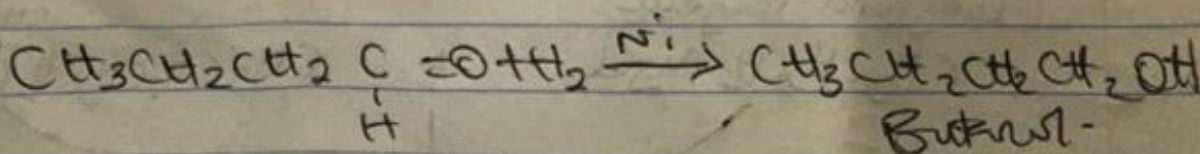 CH3CH2CH2 C =O+H2 Ni → CH3CH2CH2CH2OH
H
Butanol.